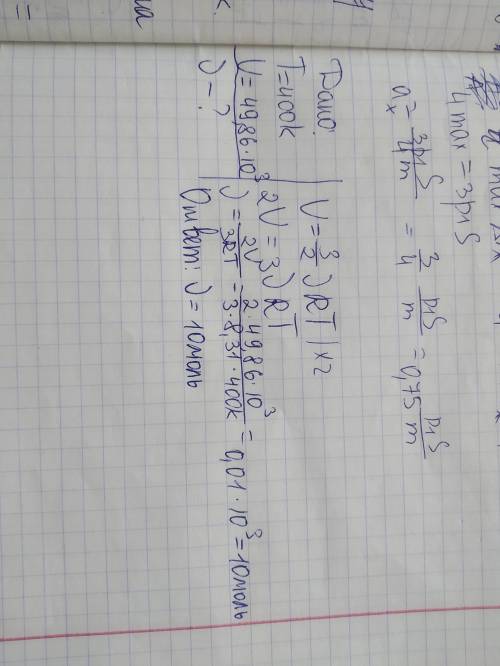 4max = 3p₁S
aₓ = 3p₁S/4m = 3/4 p₁S/m = 0,75 p₁S/m
Дано:
T=400k
U=49,86·10³
ν - ?
U = 3/2 νRT |×2
2U = 3νRT
ν = 2U/3RT = 2·4986·10³/3·8,31·400k = 0,01·10³ = 10моль
Ответ: ν = 10моль